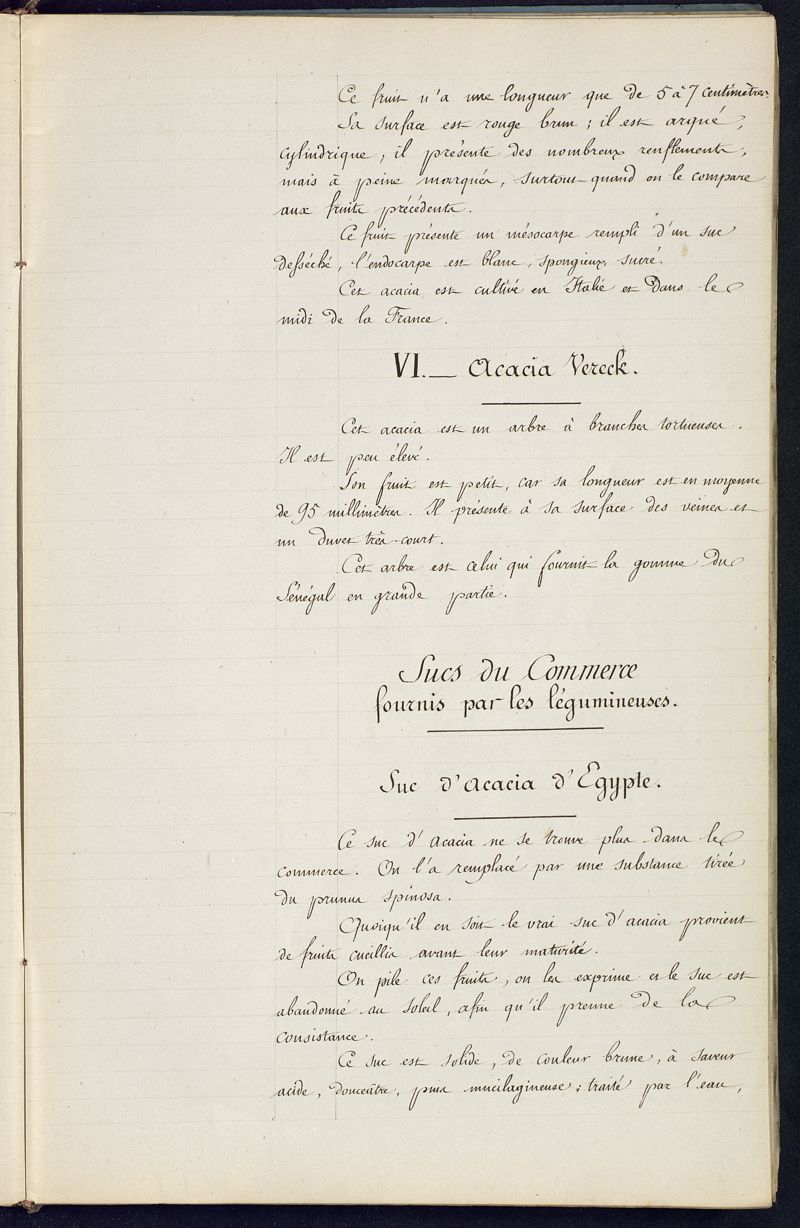 Ce fruit n'a une longueur que de 5 à 7 centimètres.
Sa surface est rouge brun ; il est arqué,
cylindrique, il présente des nombreux renflements,
mais à peine marqués, surtout quand on le compare
aux fruits précédents.
Ce fruit présente un mésocarpe rempli d'un suc
desséché, l'endocarpe est blanc, spongieux, sucré.
Cet acacia est cultivé en Italie et dans le
midi de la France.
VI. — Acacia Vereck.
Cet acacia est un arbre à branches tortueuses.
Il est peu élevé.
Son fruit est petit, car sa longueur est en moyenne
de 95 millimètres. Il présente à sa surface des veines et
un duvet très-court.
Cet arbre est celui qui fournit la gomme du
Sénégal en grande partie.
Sucs du Commerce
fournis par les légumineuses.
Suc d'Acacia d'Egypte.
Ce suc d'acacia ne se trouve plus dans le
commerce. On l'a remplacé par une substance tirée
du prunus spinosa.
Quoiqu'il en soit le vrai suc d'acacia provient
de fruits cueillis avant leur maturité.
On pile ces fruits, on les exprime et le suc est
abandonné au soleil, afin qu'il prenne de la
consistance.
Ce suc est solide, de couleur brune, à saveur
acide, douceâtre, puis mucilagineuse ; traité par l'eau,